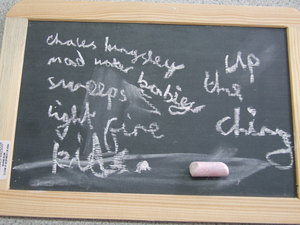 chales kingsley
mad water
sweeps babies
light fire
kids
up
the
ching